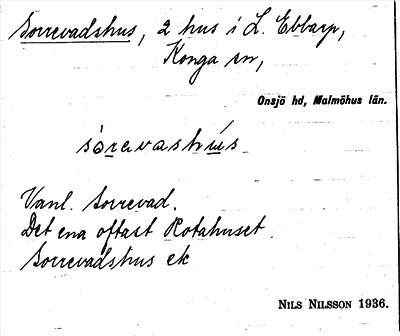 Sorrevadshus, 2 hus i L. Ebbarp,
Konga sn,
Onsjö hd, Malmöhus län.
sòrevashús
Vanl. Sorrevad.
Det ena oftast Rotahuset.
Sorrevadshus ek
NILS NILSSON 1936.